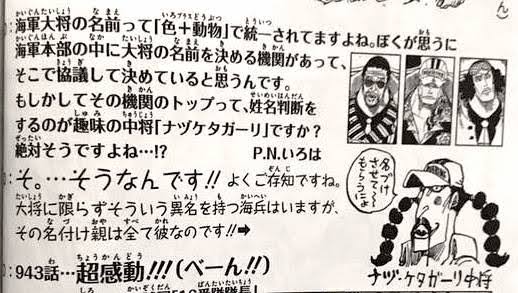 海軍大将の名前って「色＋動物」で統一されてますよね。ぼくが思うに
海軍本部の中に大将の名前を決める機関があって、
そこで協議して決めていると思うんです。
もしかしてその機関のトップって、姓名判断を
するのが趣味の中将「ナヅ・ケタガーリ」ですか？
絶対そうですよね…!? P.N.いろは
そ。…そうなんです!! よくご存知ですね。
大将に限らずそういう異名を持つ海兵はいますが、
その名付け親は全て彼なのです!!➡
名づけ
させて〜〜
もらうによ
ナヅ・ケタガーリ中将
943話…超感動!!!(べーん!!)